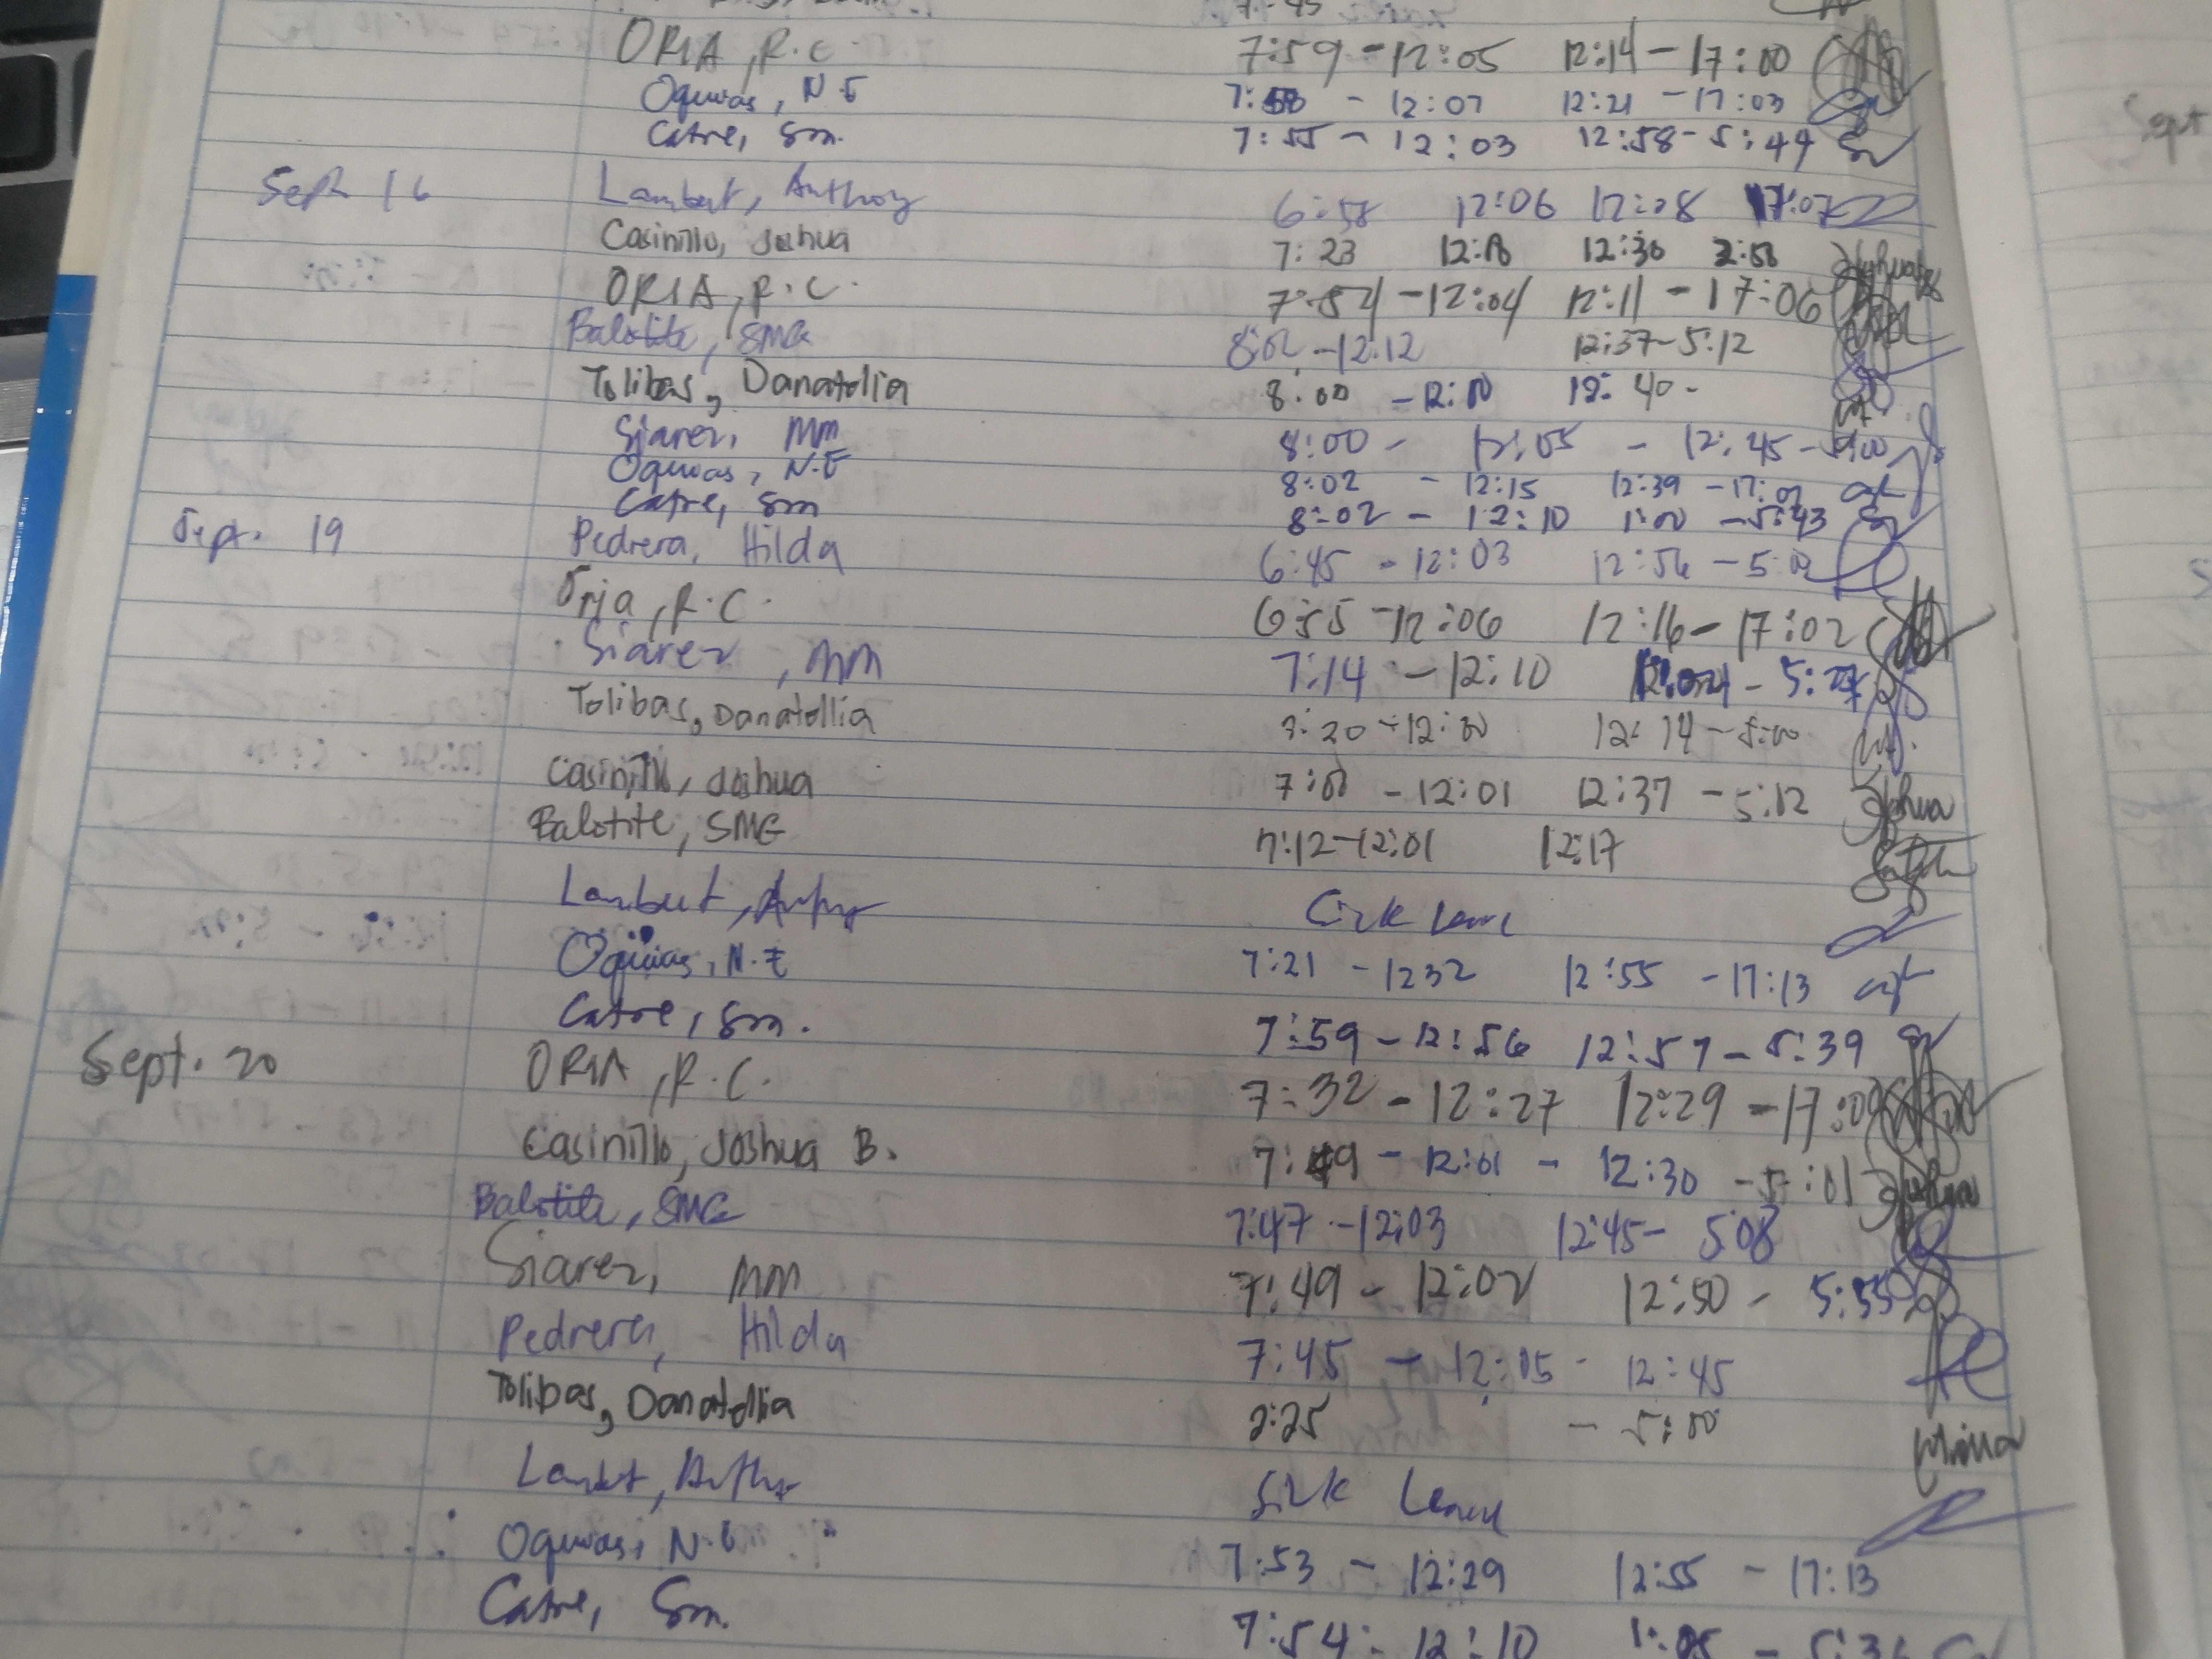 ORIA, R.C. 7:59 - 12:05 12:14 - 17:00
Oquias, N.E 7:58 - 12:07 12:21 - 17:03
Catre, Sm. 7:55 - 12:03 12:58 - 5:44
Sept 16 Lambert, Anthony 6:58 12:06 12:28 17:07
Casinillo, Joshua 7:23 12:18 12:30 2:58
ORIA, R.C. 7:54 - 12:04 12:11 - 17:06
Balotite, SMG 8:02 - 12:12 12:37 - 5:12
Tolibas, Danatollia 8:00 - 12:10 12:40 -
Siarez, MM 8:00 - 12:05 - 12:45 - 5:00
Oquias, N.E 8:02 - 12:15 12:39 - 17:02
Catre, Sm 8:02 - 12:10 1:00 - 5:43
Sept. 19 Pedrera, Hilda 6:45 - 12:03 12:56 -
Oria, R.C. 6:55 - 12:06 12:16 - 17:02
Siarez, MM 7:14 - 12:10
Tolibas, Danatollia 7:20 - 12:00 12:14 - 5:00
Casinillo, Joshua 12:01 12:37 - 5:12 Joshua
Balotite, SMG 7:12 - 12:01 12:17
Lambert, Sick Leave
Oquias, N.E 7:21 - 1232 12:55 - 17:13
Catre, Sm. 7:59 - 12:56 12:57 - 5:39
Sept. 20 ORIA, R.C. 7:32 - 12:27 12:29 - 17:00
Casinillo, Joshua B. 7:49 - 12:01 - 12:30 - 5:01
Balotite, SMG 7:47 - 12:03 12:45 - 508
Siarez, MM 7:49 - 12:02 12:50 - 5:55
Pedrera, Hilda 7:45 - 12:05 - 12:45
Tolibas, Danatollia 2:25 - 5:00
Lambert, Sick Leave
Oquias, N.E 7:53 - 12:29 12:55 - 17:13
Catre, Sm. 7:54 - 12:10 1:05 - 5:36